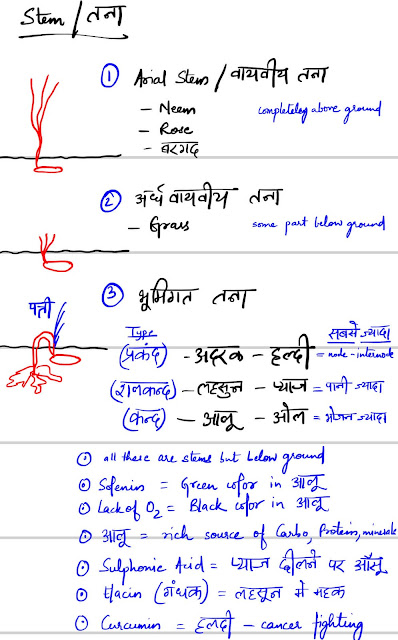 Stem / तना
① Arial Stem / वायवीय तना
- Neem
completeleg above ground
- Rose
- बरगद
② अर्ध वायवीय तना
- Grass
some part below ground
③ भूमिगत तना
पत्ती
Type
सबसे ज्यादा
(प्रकंद) - अदरक - हल्दी = node - internode
(शल्ककन्द) - लहसुन - प्याज = पानी ज्यादा
(कन्द) - आलू - ओल = भोजन ज्यादा
all these are stems but below ground
Solenin = Green color in आलू
Lack of O₂ = Black color in आलू
आलू = rich source of Carbo, Protein, minerals
Sulphonic Acid = प्याज छीलने पर आँसू
(गंधक) = लहसून में महक
Curcumin = हल्दी - cancer fighting